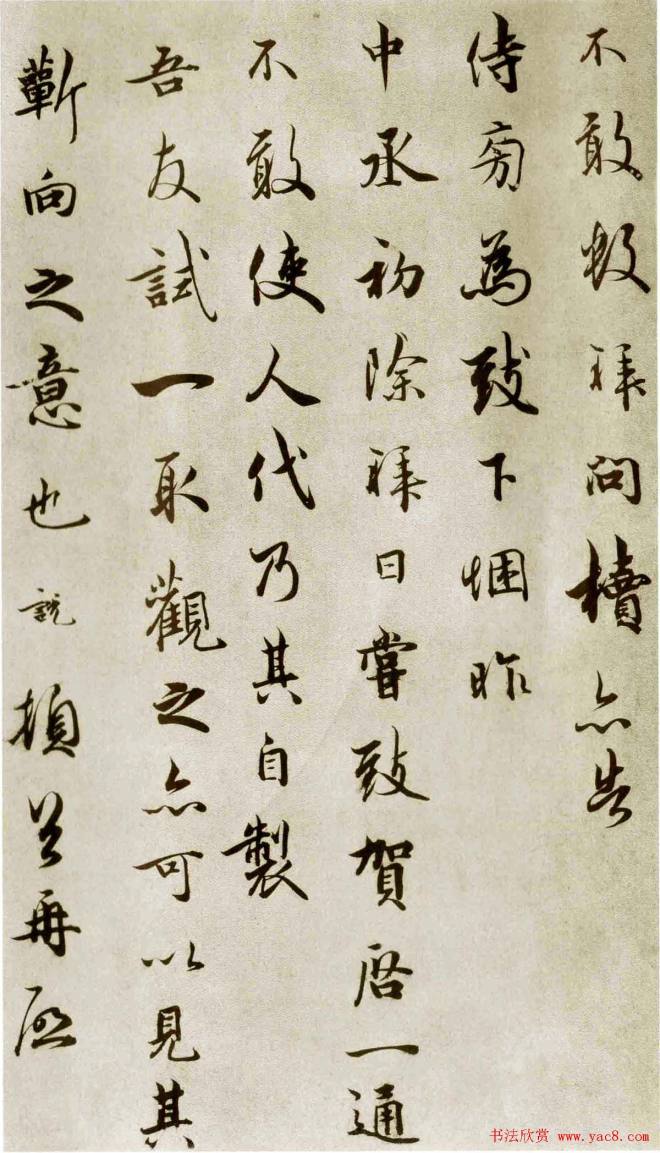 不敢数拜问牍亦告
侍旁為致下悃昨
中丞初除拜日嘗致賀啓一通
不敢使人代乃其自製
吾友試一取觀之亦可以見其
蘄向之意也說頓首再啓
书法欣赏 www.yac8.com